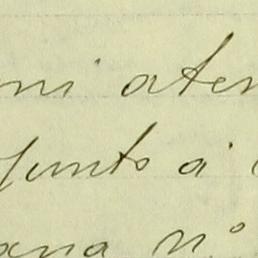 mi aten
junto á
ana nº